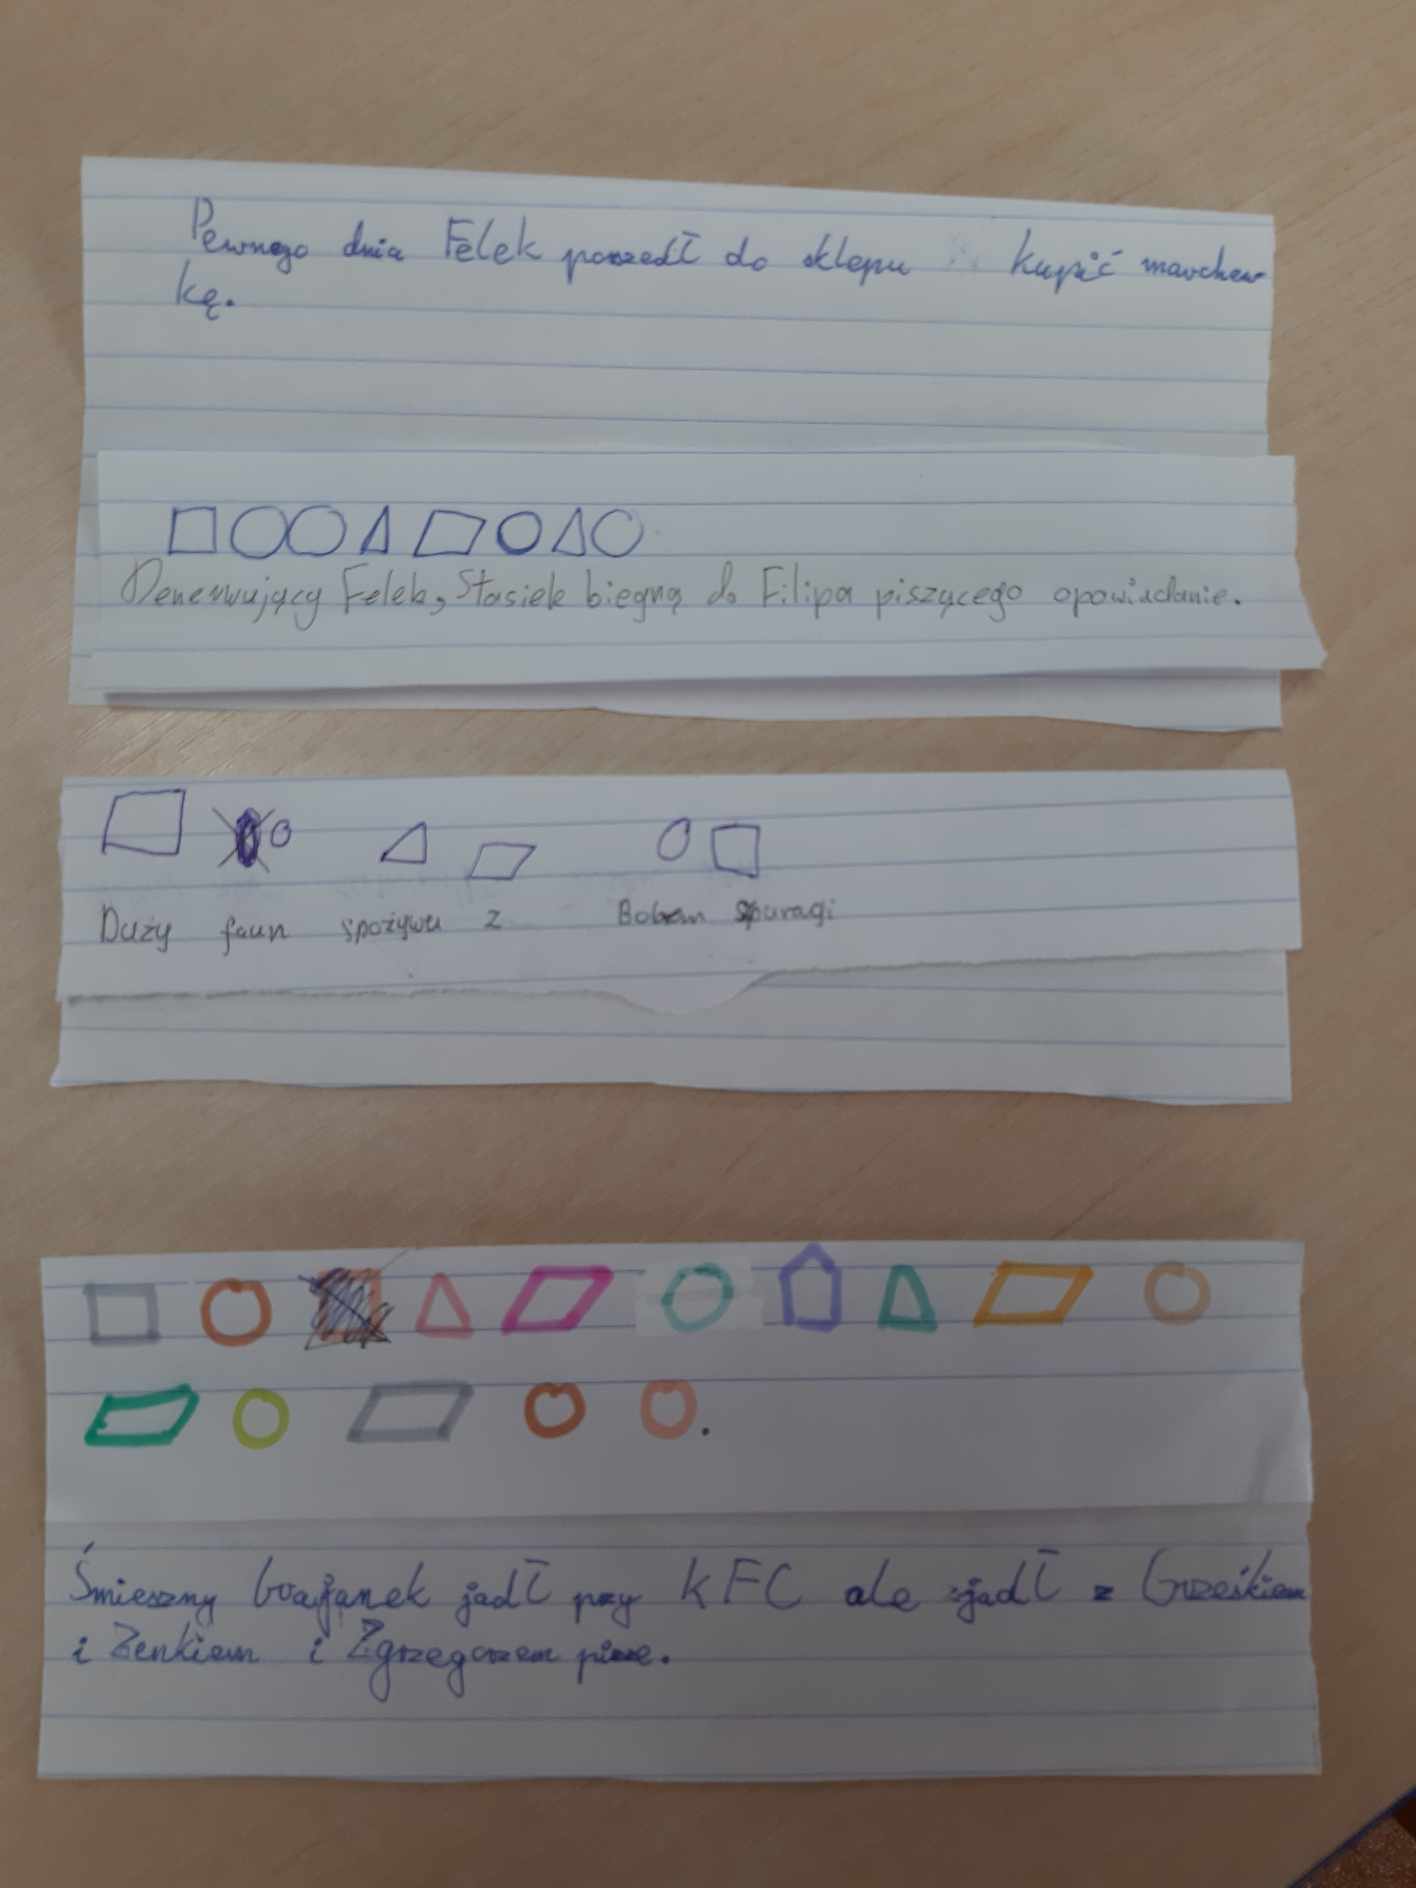 Pewnego dnia Felek poszedł do sklepu kupić marchew
kę.
Denerwujący Felek, Stasiek biegną do Filipa piszącego opowiadanie.
Duży faun spożywa z Bobem szparagi
Śmieszny jadł przy KFC ale zjadł z Grześkiem
i Zenkiem i Zgrzegorzem pizze.